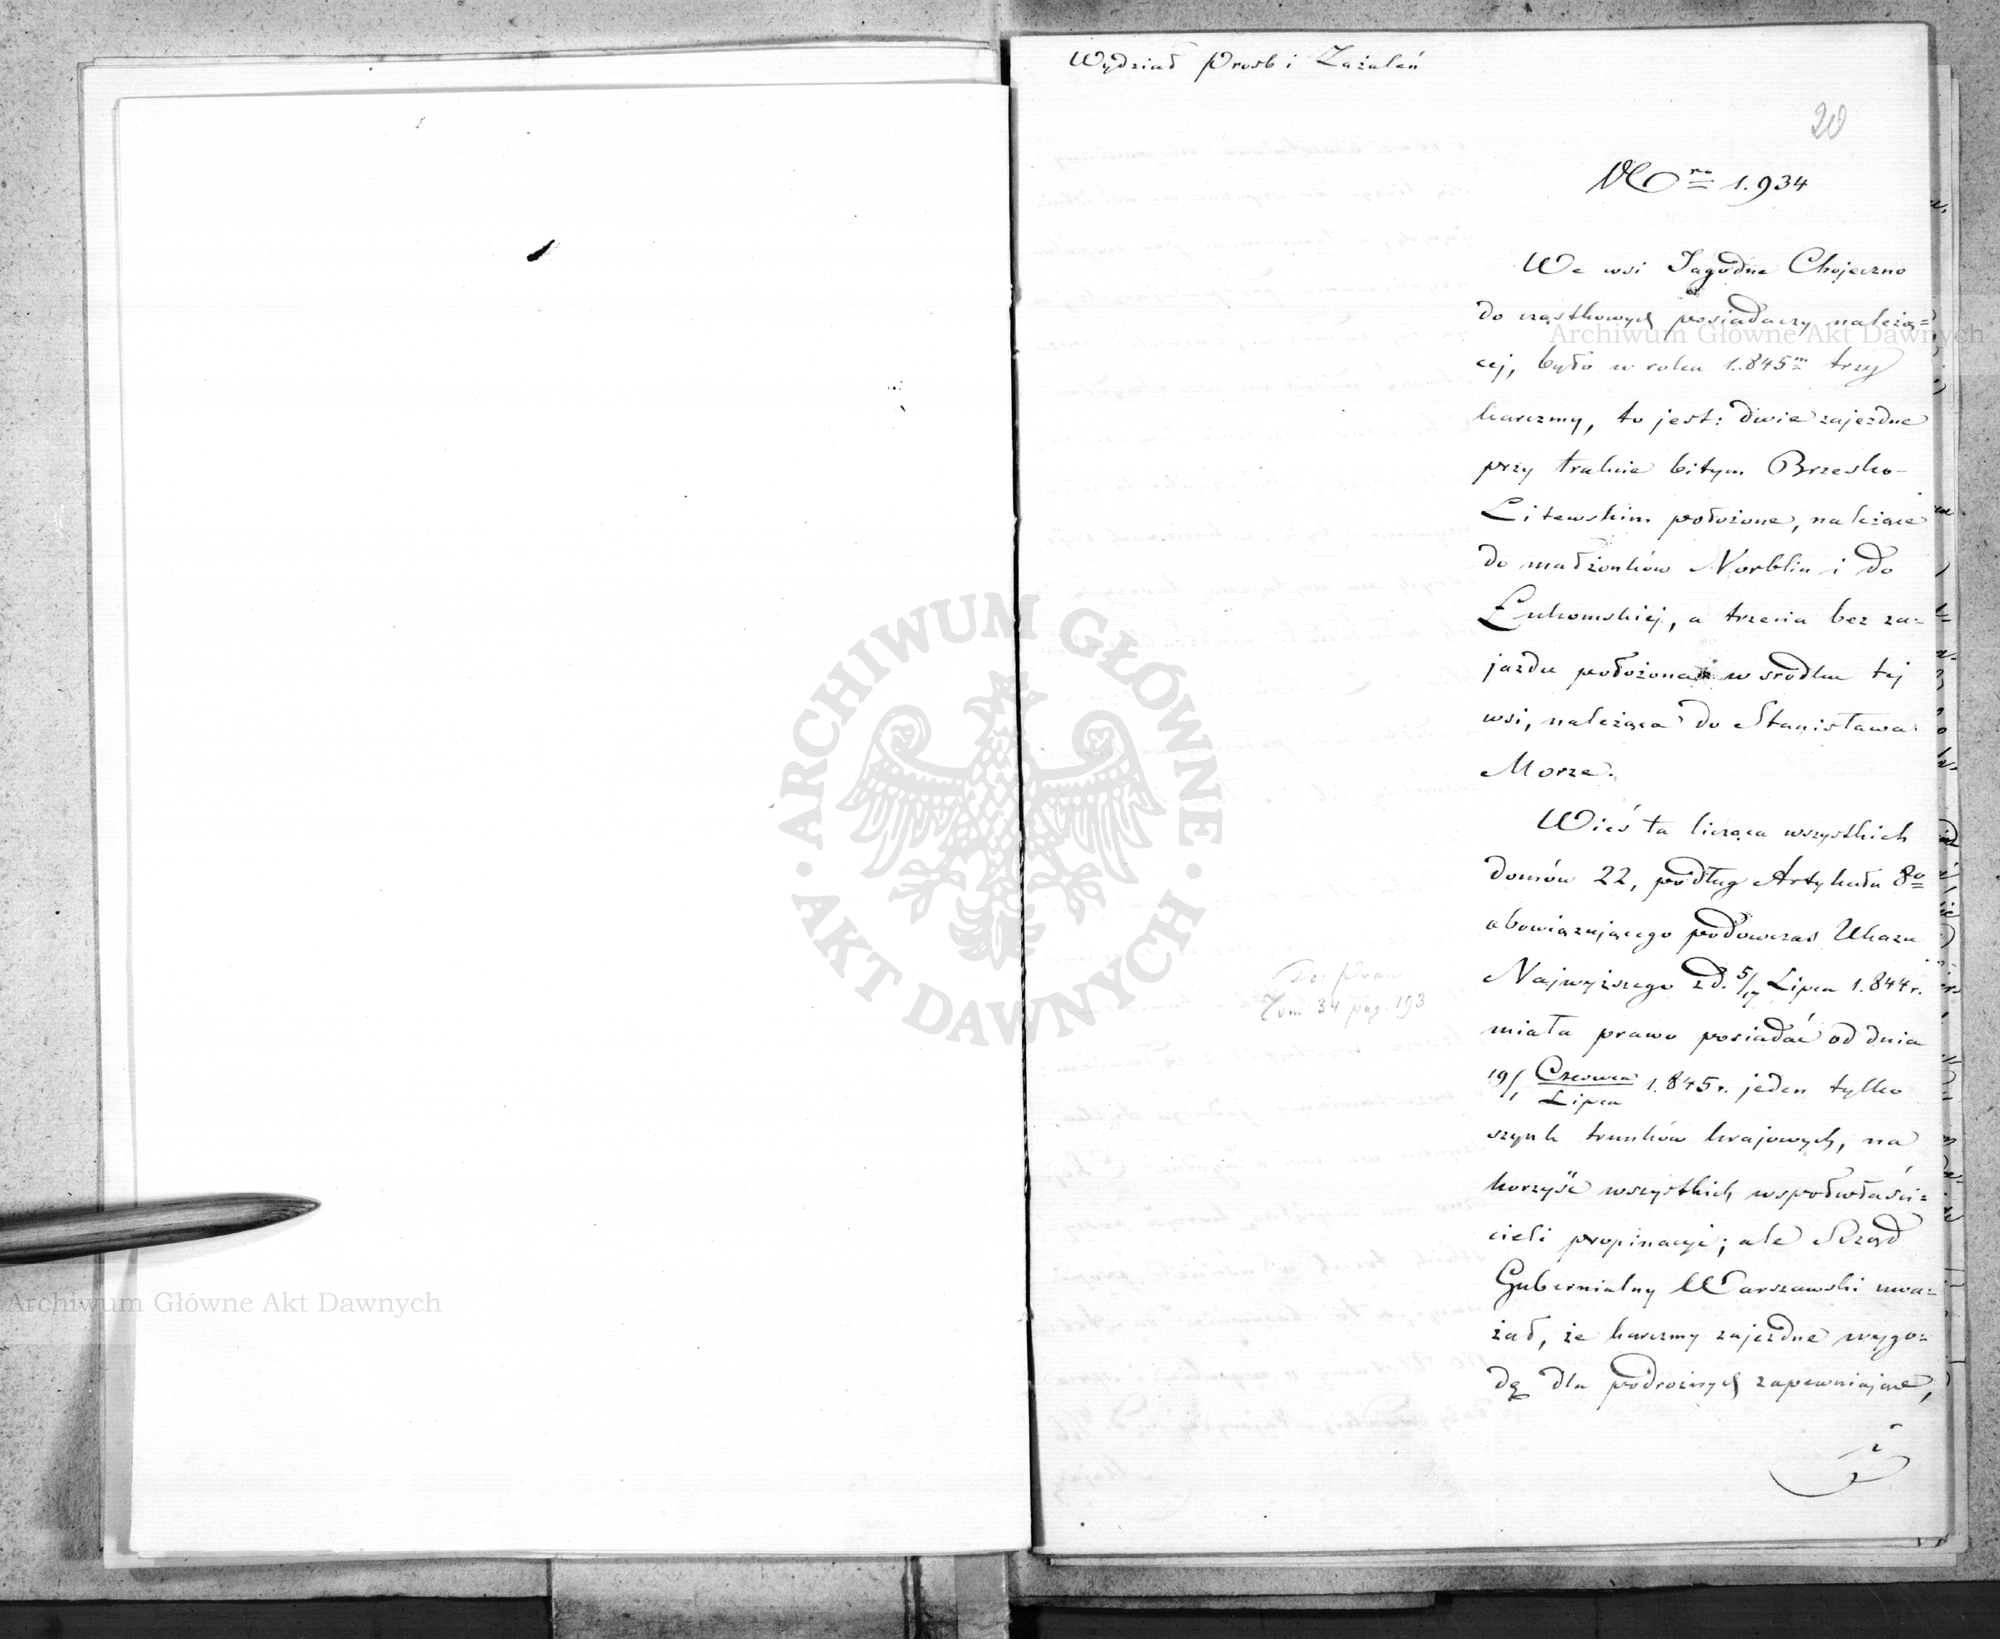 Wydział Prosb i Zażaleń
20
Nro 1.934
We wsi Jagodne Chojeczno
do cząstkowych posiadaczy należą=
cej, było w roku 1.845m trzy
karczmy, to jest: dwie zajezdne
przy trakcie bitym Brzesko-
Litewskim położone, należące
do małżonków Norblin i do
Łukomskiej, a trzecia bez za-
jazdu położona w srodku tej
wsi, należąca do Stanisława
Morze.
Wieś ta licząca wszystkich
domów 22, podług Artykułu 8o
obowiązującego podówczas Ukazu
Najwyższego z d. 5/17 Lipca 1.844 r.
miała prawo posiadać od dnia
19/1 Czerwca/Lipca 1.845 r. jeden tylko
szynk trunków krajowych, na
korzyść wszystkich wspołwłaści=
cieli propinacyi; ale Rząd
Gubernialny Warszawski uwa=
żał, że karczmy zajezdne wygo=
dę dla podrożnych zapewniające,
Dz. Praw
Tom 34 pag. 193
Archiwum Główne Akt Dawnych
ARCHIWUM GŁÓWNE AKT DAWNYCH
Archiwum Główne Akt Dawnych